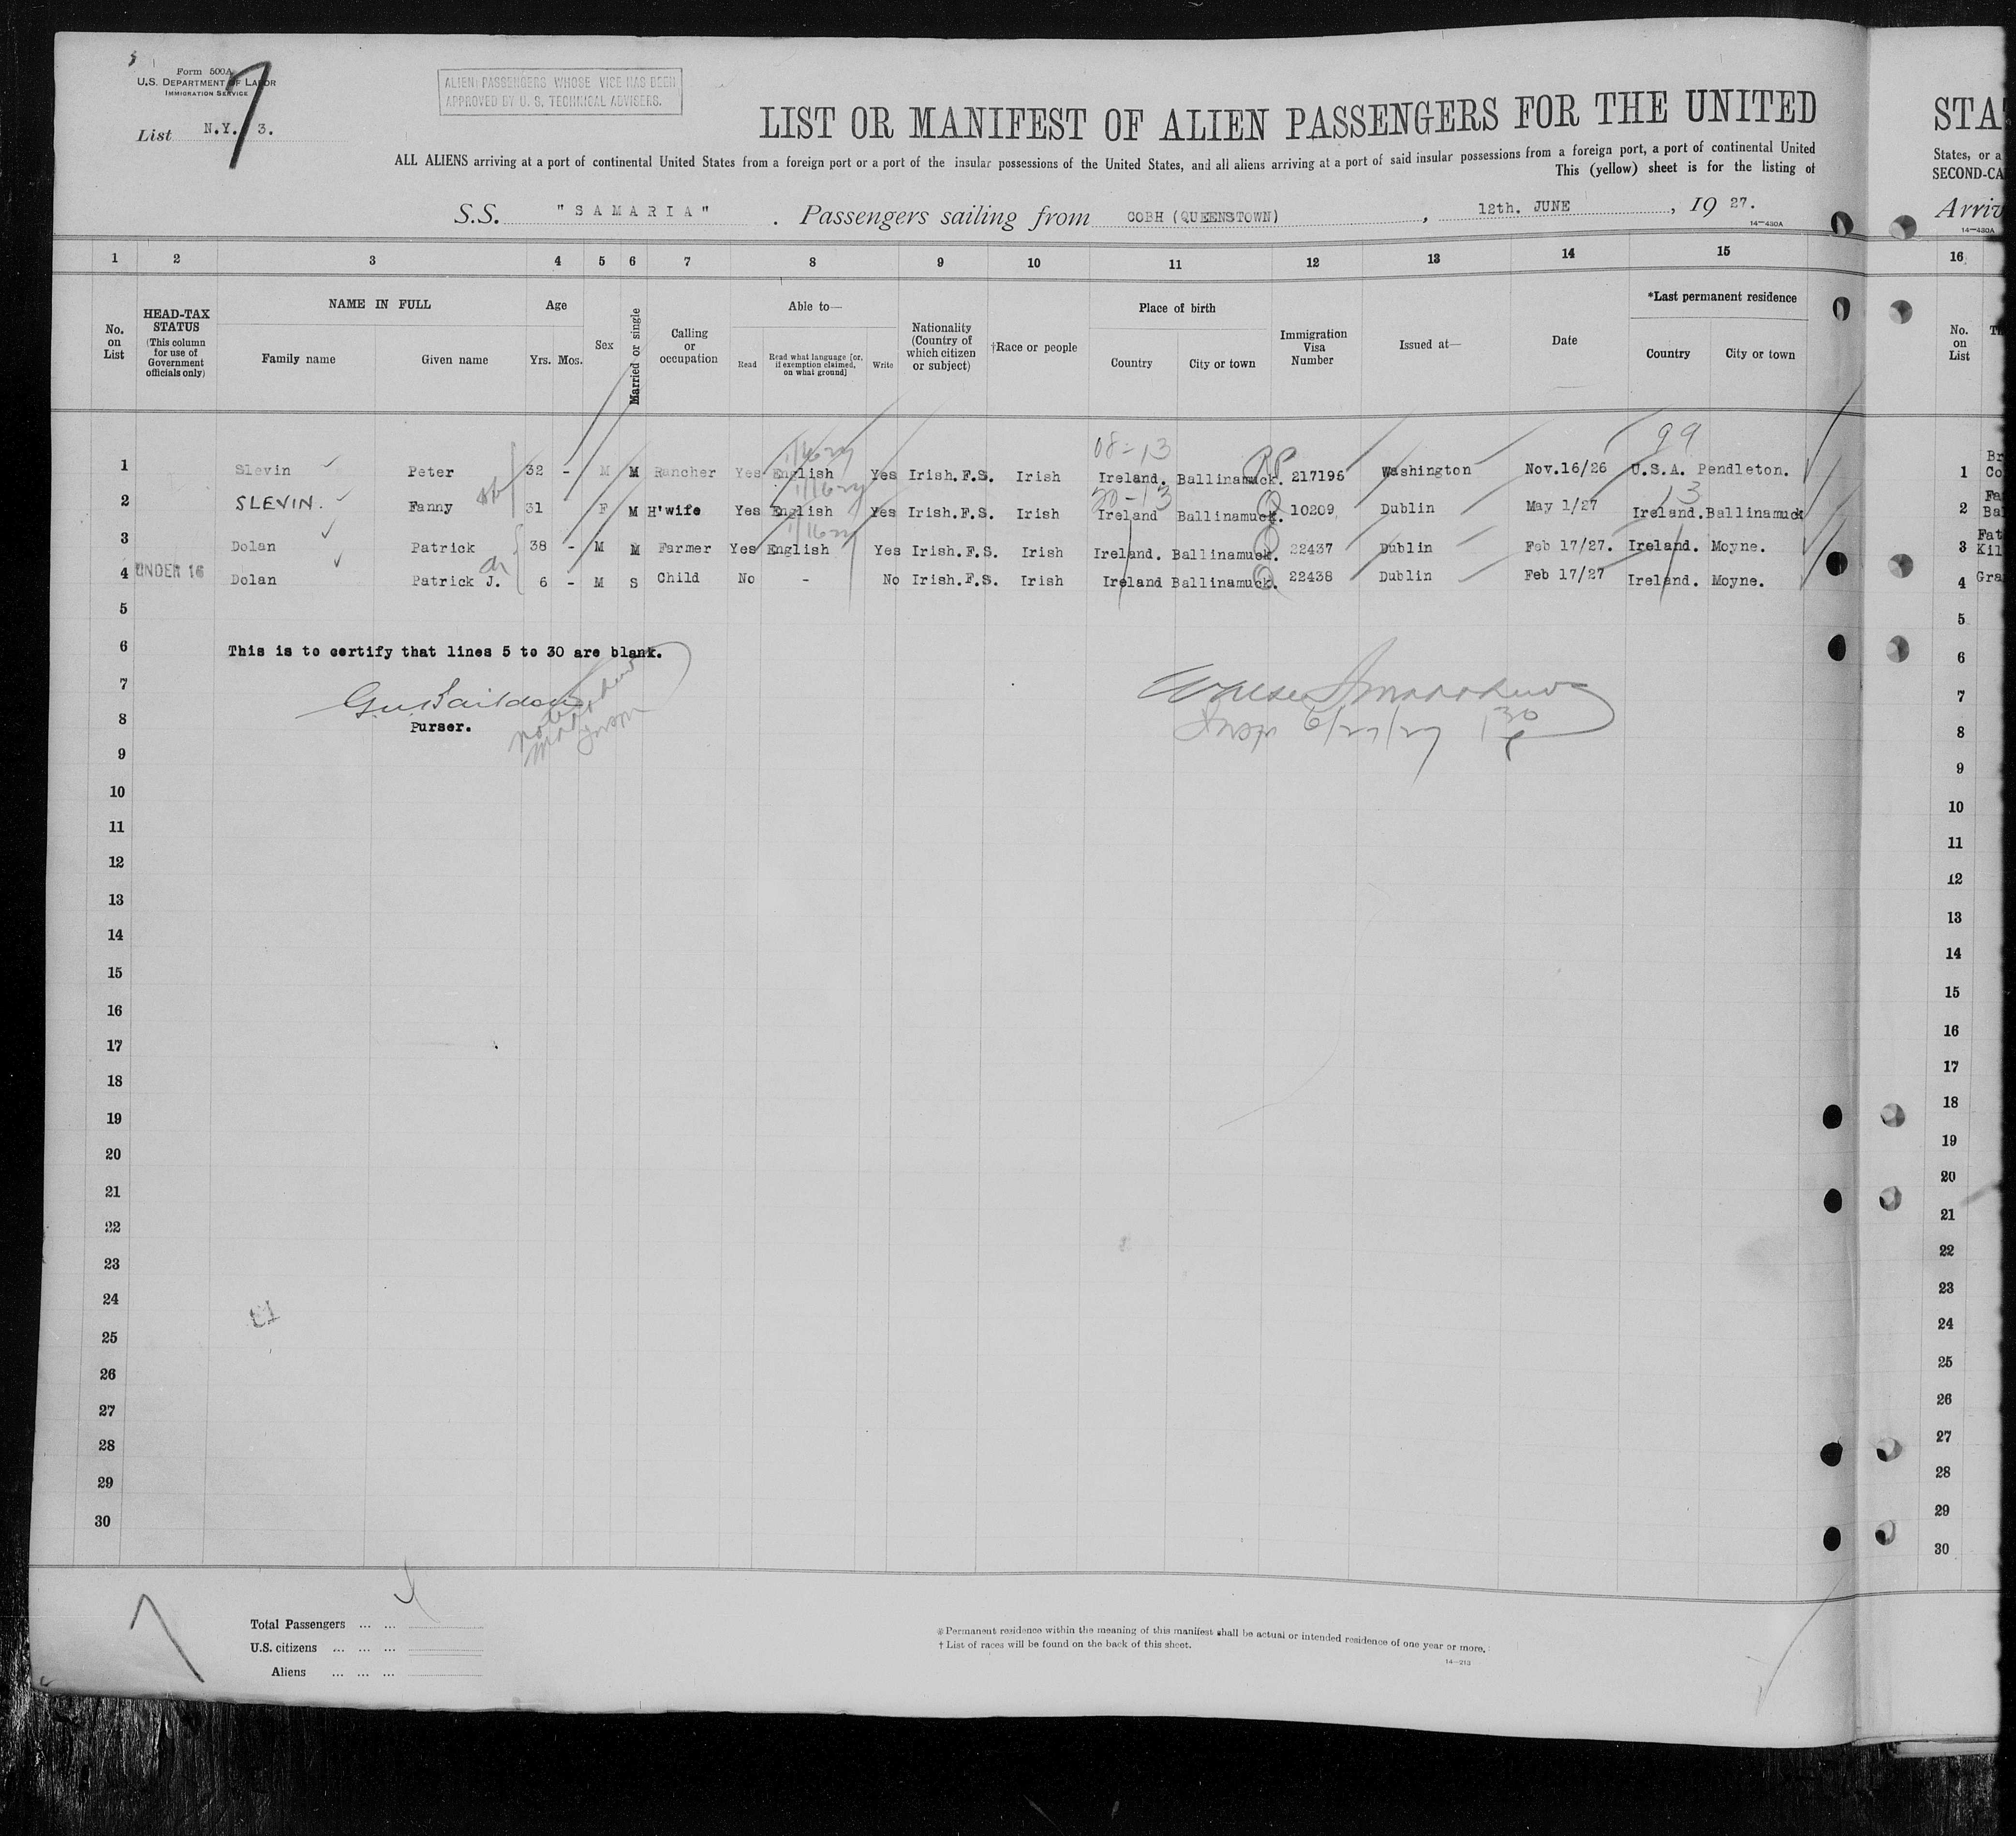 Form 500A
U.S. DEPARTMENT OF LABOR
IMMIGRATION SERVICE
List N.Y. 3.
7
ALIEN PASSENGERS WHOSE VICE HAS BEEN
APPROVED BY U. S. TECHNICAL ADVISERS.
LIST OR MANIFEST OF ALIEN PASSENGERS FOR THE UNITED
ALL ALIENS arriving at a port of continental United States from a foreign port or a port of the insular possessions of the United States, and all aliens arriving at a port of said insular possessions from a foreign port, a port of continental United
This (yellow) sheet is for the listing of
S.S. "SAMARIA" . Passengers sailing from COBH (QUEENSTOWN) , 12th. JUNE , 19 27.
14—430A
1 2 3 4 5 6 7 8 9 10 11 12 13 14 15
No. on List
HEAD-TAX STATUS (This column for use of Government officials only)
NAME IN FULL
Family name Given name
Age
Yrs. Mos.
Sex
Married or single
Calling or occupation
Able to—
Read Read what language [or, if exemption claimed, on what ground] Write
Nationality (Country of which citizen or subject)
†Race or people
Place of birth
Country City or town
Immigration Visa Number
Issued at—
Date
*Last permanent residence
Country City or town
08-13 99
1 Slevin Peter 32 - M M Rancher Yes English Yes Irish.F.S. Irish Ireland. Ballinamuck. 217195 Washington Nov.16/26 U.S.A. Pendleton.
20-13 13
2 SLEVIN. Fanny 31 F M H'wife Yes English Yes Irish.F.S. Irish Ireland Ballinamuck. 10209 Dublin May 1/27 Ireland.Ballinamuck
3 Dolan Patrick 38 - M M Farmer Yes English Yes Irish.F.S. Irish Ireland. Ballinamuck. 22437 Dublin Feb 17/27. Ireland. Moyne.
4 UNDER 16 Dolan Patrick J. 6 - M S Child No - No Irish.F.S. Irish Ireland Ballinamuck. 22438 Dublin Feb 17/27 Ireland. Moyne.
5
6 This is to certify that lines 5 to 30 are blank.
7
8 Purser.
Insp 6/27/27 1 30
9
10
11
12
13
14
15
16
17
18
19
20
21
22
23
24
25
26
27
28
29
30
Total Passengers ... ...
U.S. citizens ... ... ...
Aliens ... ... ...
* Permanent residence within the meaning of this manifest shall be actual or intended residence of one year or more.
† List of races will be found on the back of this sheet.
14—213
STA
States, or a
SECOND-CA
Arriv
14—430A
16
No. on List
1 Br
Co
2 Fa
Bal
3 Fat
Kil
4 Gra
5
6
7
8
9
10
11
12
13
14
15
16
17
18
19
20
21
22
23
24
25
26
27
28
29
30